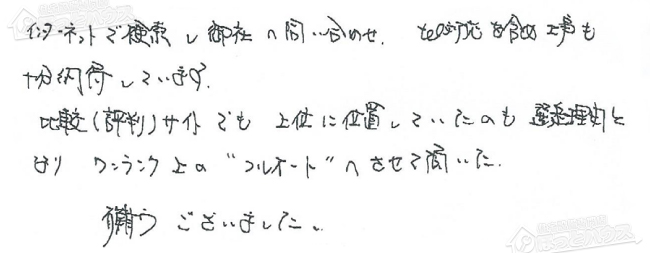 インターネットで検索し御社へ問い合わせ、tel対応を含め工事も
十分納得しています。
比較(評判)サイトでも上位に位置していたのも選定理由と
なり ワンランク上の"フルオート"へさせて頂いた。
有難うございました。